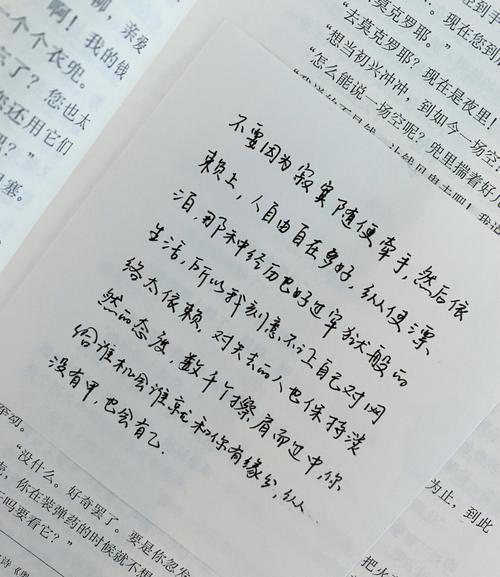 柳，亲爱
啊！我的钱
一个个衣兜。
忘了？您也太
您还用它们
塞。
“去莫克罗耶。”
“去莫克罗耶？现在是夜里！
“想当初兴冲冲，到如今一场空？
“怎么能说一场空呢？兜里揣着好几
不要因为寂寞随便牵手，然后依
赖上，人自由自在多好，纵使漂
泊，那种经历也好过牢狱般的
生活，所以我刻意不让自己对网
络太依赖，对失去的人也保持淡
然的态度，数千个擦肩而过中，你
给谁机会谁就和你有缘分，纵
没有甲，也会有乙.
“没什么。好奇罢了。要是你忽发
你在装弹药的时候就不想
吗要看它？”
为止，到此
把火